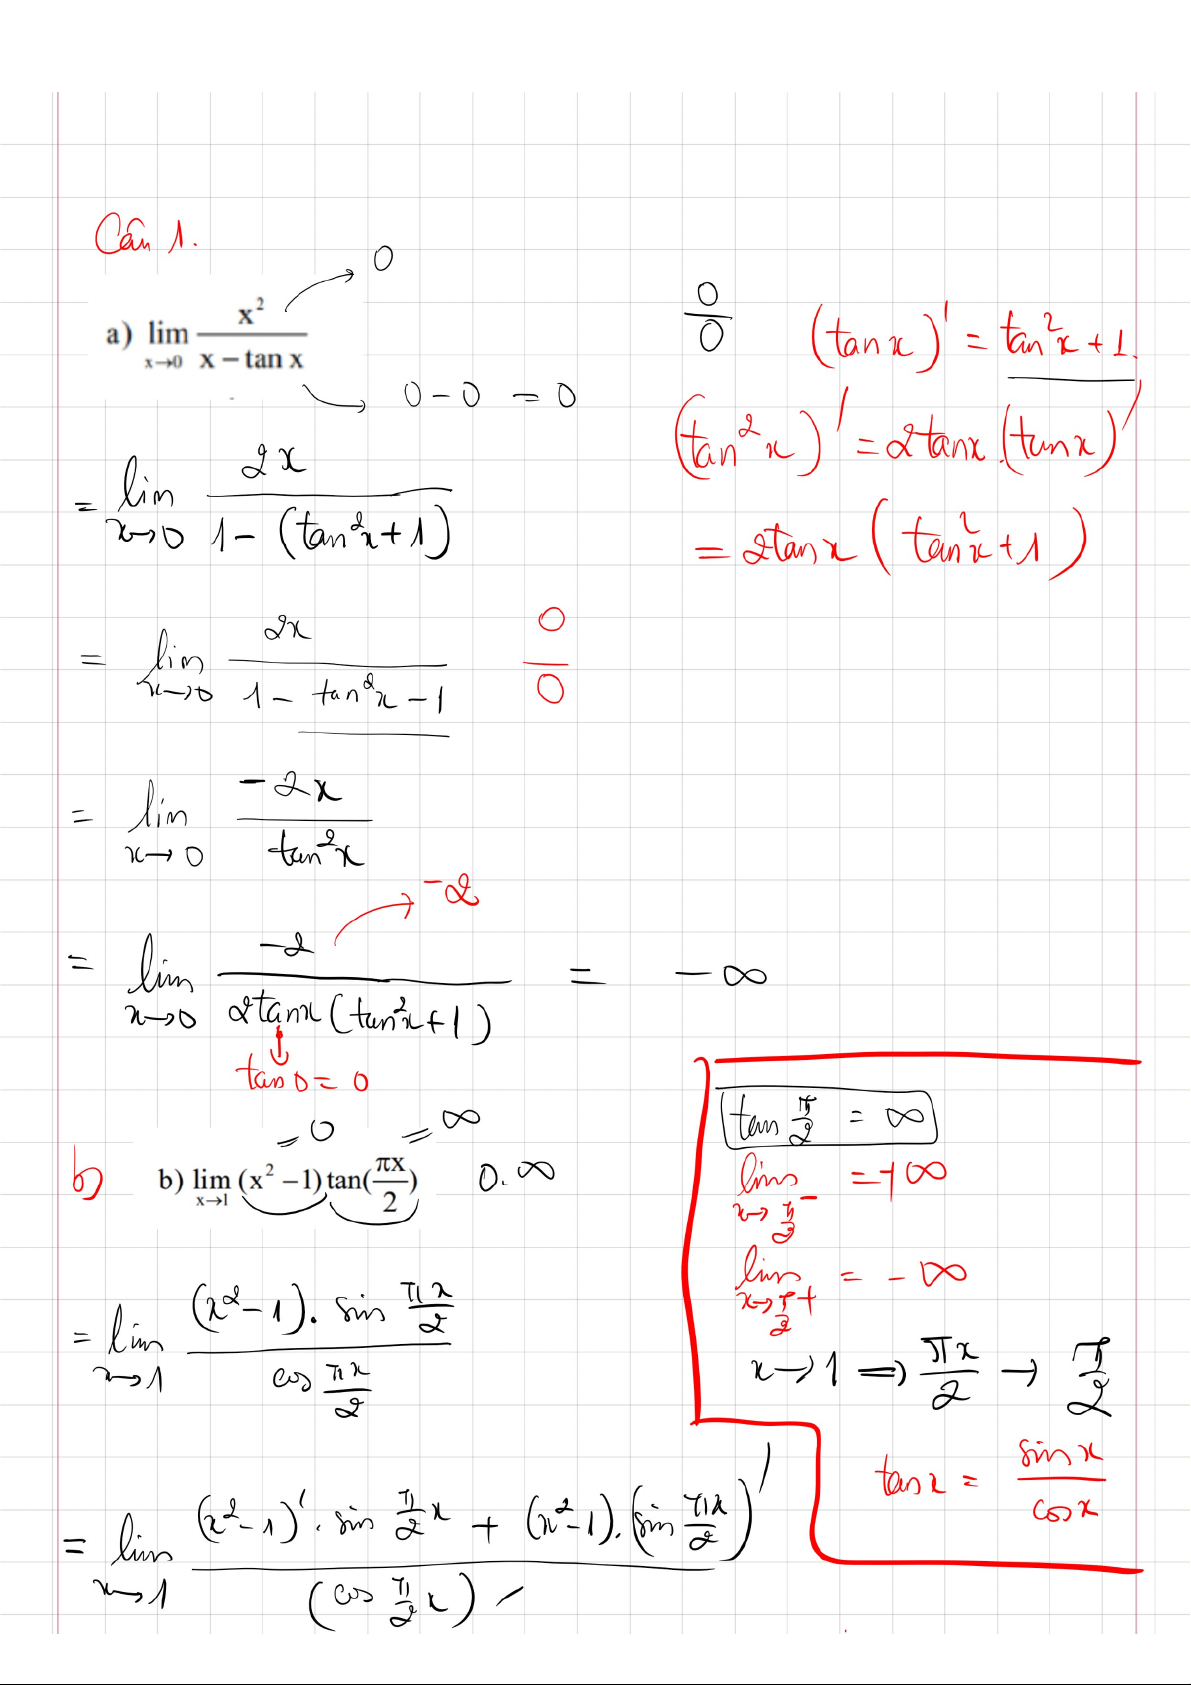 Câu 1.
0
a) lim x→0 x² / (x − tan x)
0 − 0 = 0
0/0
(tan x)' = tan²x + 1.
(tan²x)' = 2tanx.(tanx)'
= 2tanx (tan²x + 1)
= lim x→0 2x / (1 − (tan²x + 1))
= lim x→0 2x / (1 − tan²x − 1)
0/0
= lim x→0 −2x / tan²x
−2
= lim x→0 −2 / (2tanx (tan²x + 1)) = −∞
tan 0 = 0
= 0 = ∞
b) b) lim x→1 (x² − 1) tan(πx/2) 0.∞
tan π/2 = ∞
lim x→π/2⁻ = +∞
lim x→π/2⁺ = −∞
x→1 ⇒ πx/2 → π/2
tanx = sinx / cosx
= lim x→1 (x² − 1). sin πx/2 / cos πx/2
= lim x→1 ((x² − 1)'. sin π/2 x + (x² − 1).(sin πx/2)') / (cos π/2 x)'